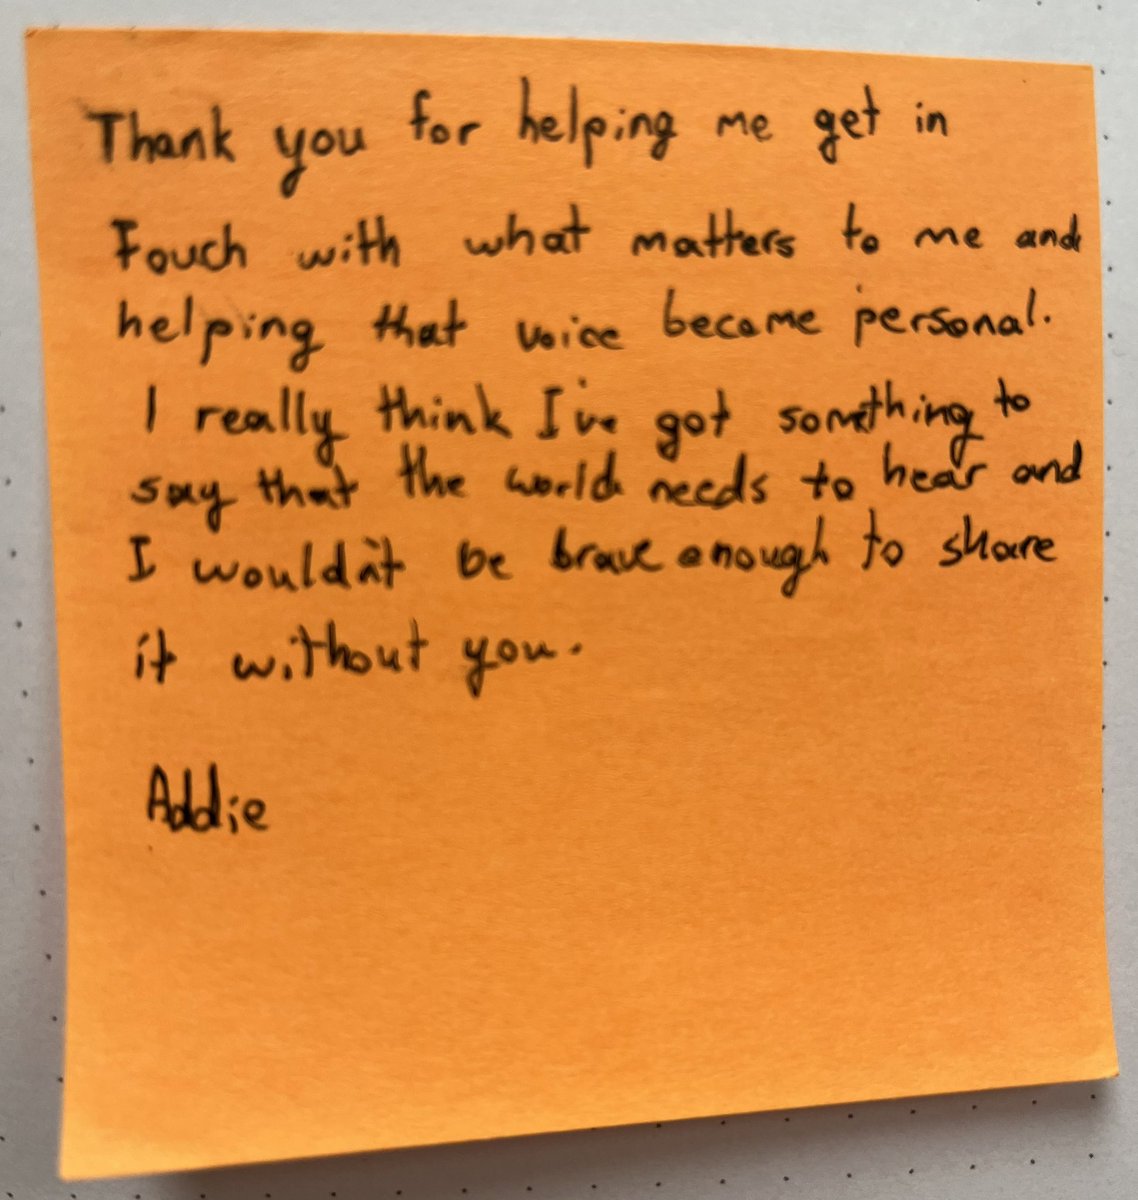 Thank you for helping me get in
touch with what matters to me and
helping that voice become personal.
I really think I've got something to
say that the world needs to hear and
I wouldn't be brave enough to share
it without you.
Addie